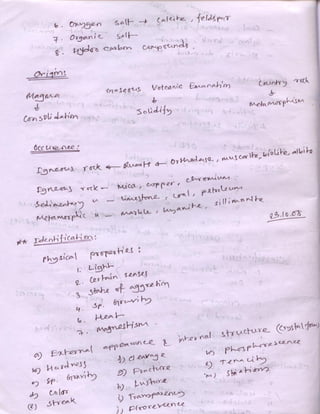 6. Oxygen salt → Calcite, feldspar
7. Organic salt
8. Hydro carbon compounds.
Origin:
Magma Gaseous Volcanic Emanation Country rock
↓ ↓ ↓
Consolidation Solidify Metamorphism
Occurence:
Igneous rock ← Quartz & Orthoclase, muscovite, biotite, albite
Igneous rock - Mica, copper, chromium.
Sedimentary " - limestone, coal, petroleum
Metamorphic " - marble, kyanite, sillimanite
23.10.08
** Identification:
Physical properties:
1. Light
2. Certain senses
3. State of aggretion
4. Sp. Gravity
6. Heat
7. Magnestism.
a) External appearance & internal structure (Crystal form)
b) Hardness f) cleavage k) Phosphorescence
c) Sp. Gravity g) Fracture l) Tenacity
d) Color h) Lusture
e) Streak i) Transparency
j) Flororescence